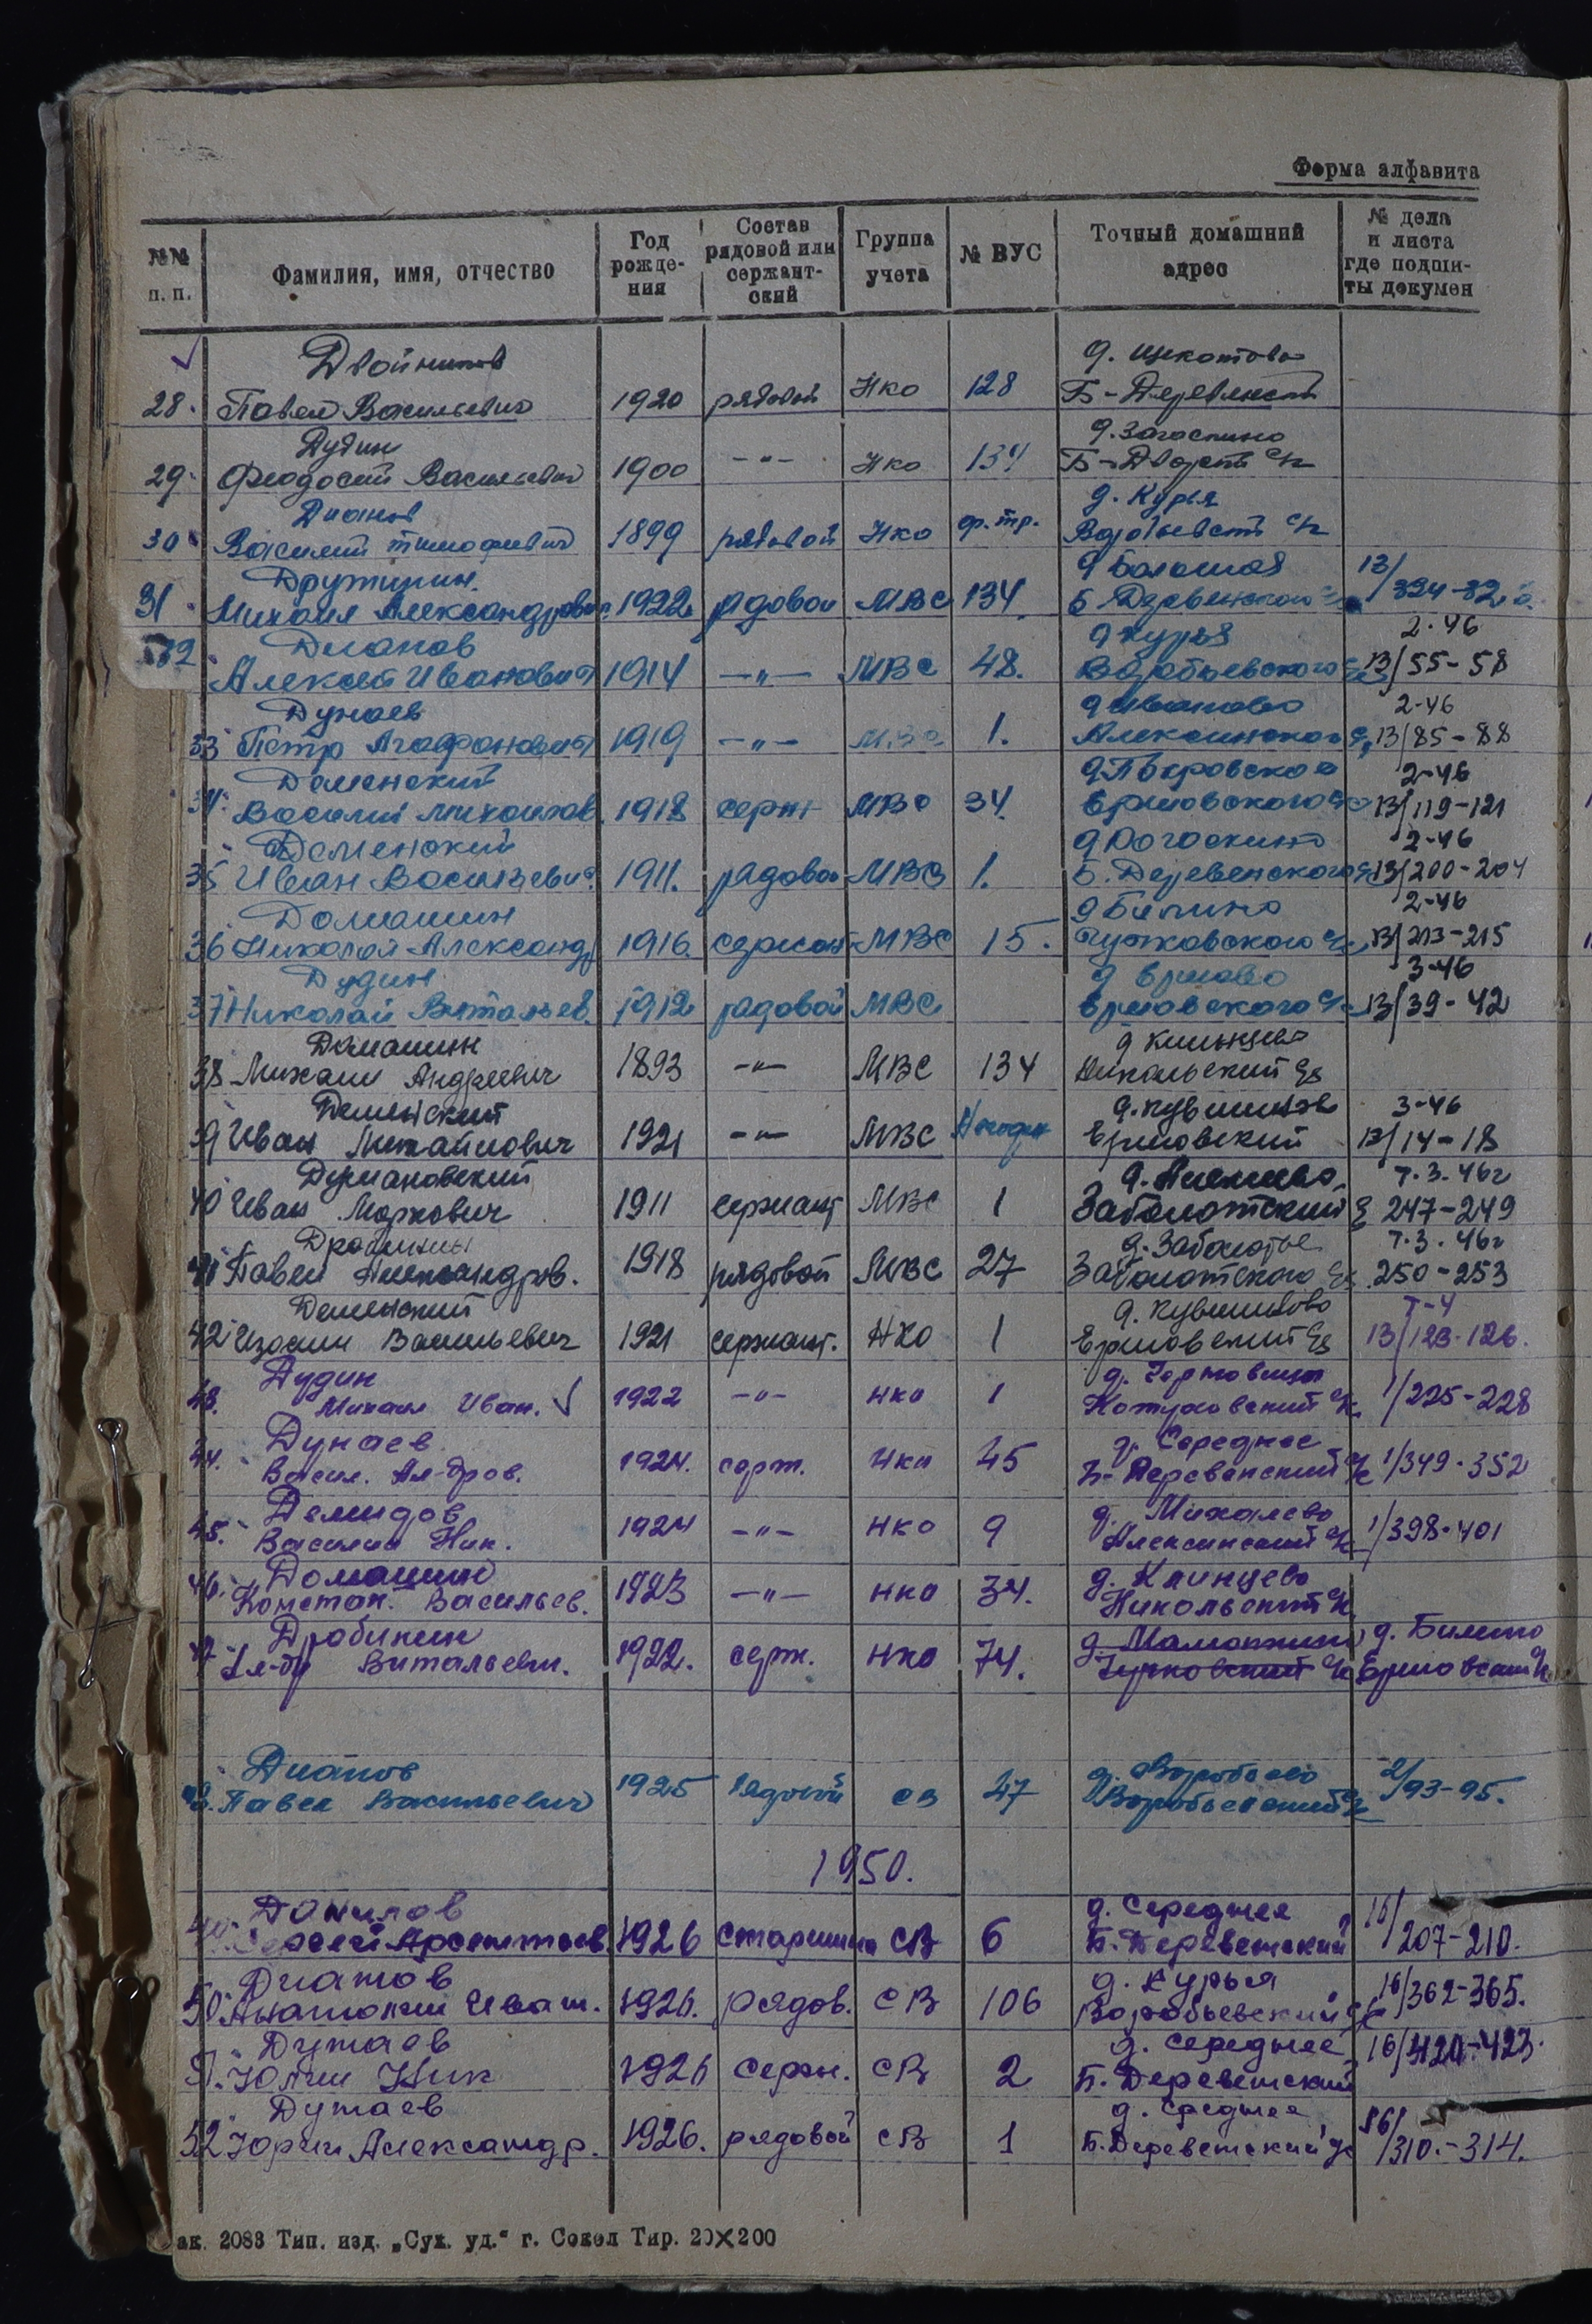 Форма алфавита
№№ п. п. Фамилия, имя, отчество Год рожде- ния Состав рядовой или сержант- ский Группа учета № ВУС Точный домашний адрес № дела и листа где подши- ты докумен
Двойников д. Щекотово
28. Павел Васильевич 1920 рядовой Нко 128 Б-Деревенский
Дудин д. Загоскино
29. Феодосий Васильевич 1900 —"— Нко 134 Б-Дворский с/с
Дианов д. Курья
30. Василий Тимофеевич 1899 рядовой Нко ф.тр. Воробьевский с/с
Дружинин д Большая 13/
31. Михаил Александрович 1922 рядовой МВС 134 Б. Деревенского 324-32
Дианов д Курья 2-46
32 Алексей Иванович 1914 —"— МВС 48. Воробьевского 13/55-58
Дунаев д Иваново 2-46
33 Петр Агафонович 1919 —"— МВС 1. Алексинского 13/85-88
Деменский д Покровское 2-46
34. Василий Михайлов. 1918 серж МВС 34. Ершовского 13/119-121
Деменский д Рогоскино 2-46
35 Иван Васильевич 1911. рядовой МВС 1. Б. Деревенского 13/200-204
Домашин д Билино 2-46
36 Николай Александр 1916. сержант МВС 15. Чучковского с/с 13/213-215
Дудин д Ершово 3-46
37 Николай Витальев. 1912 рядовой МВС Ершовского с/с 13/39-42
Домашин д Клинцево
38 Михаил Андреевич 1893 —"— МВС 134 Никольский с/с
Деменский д. Кувшиново 3-46
39 Иван Михайлович 1921 —"— МВС Ершовский 13/14-18
Дермановский т. 3. 46г
40 Иван Маркович 1911 сержант МВС 1 Заболотский 247-249
д. Заболотье т. 3. 46г
41 Павел Александров. 1918 рядовой МВС 27 Заболотского 250-253
Деменский д. Кувшиново т-4
42 Изосим Васильевич 1921 сержант. НКО 1 Ершовский с/с 13/123-126.
Дудин д. Чертовища
43. Михаил Иван. √ 1922 —"— нко 1 Кожуховский с/с 1/225-228
Дунаев д. Середнее
44. Васил. Ал-дров. 1924. серж. нко 45 Б-Деревенский с/с 1/349-352
Демидов д. Михалево
45. Василий Ник. 1924 —"— нко 9 Алексинский с/с 1/398-401
Домашин д. Клинцево
46. Констан. Васильев. 1923 —"— нко 34. Никольский с/с
Дробинин д. Мамонкино, д. Билино
47 Ал-др Витальевич. 1922. серж. нко 74. Чучковский с/с Ершовский с/с
Дианов д. Воробьево
48. Павел Васильевич 1925 рядовой св 47 Воробьевский с/с 2/93-95.
1950.
Данилов д. Середнее 16/
49. Сергей Арсентьев 1926 старшина СВ 6 Б. Деревенский 207-210.
Дианов д. Курья
50. Анатолий Иван. 1926. рядов. СВ 106 Воробьевский с/с 16/362-365.
Дунаев д. Середнее
51. Юлий Ник 1926 серж. СВ 2 Б. Деревенский 16/420-423.
Дунаев д. Среднее 16/
52 Юрий Александр. 1926. рядовой СВ 1 Б. Деревенский с/с 310.-314.
ак. 2083 Тип. изд. „Сух. уд.“ г. Сокол Тир. 20×200